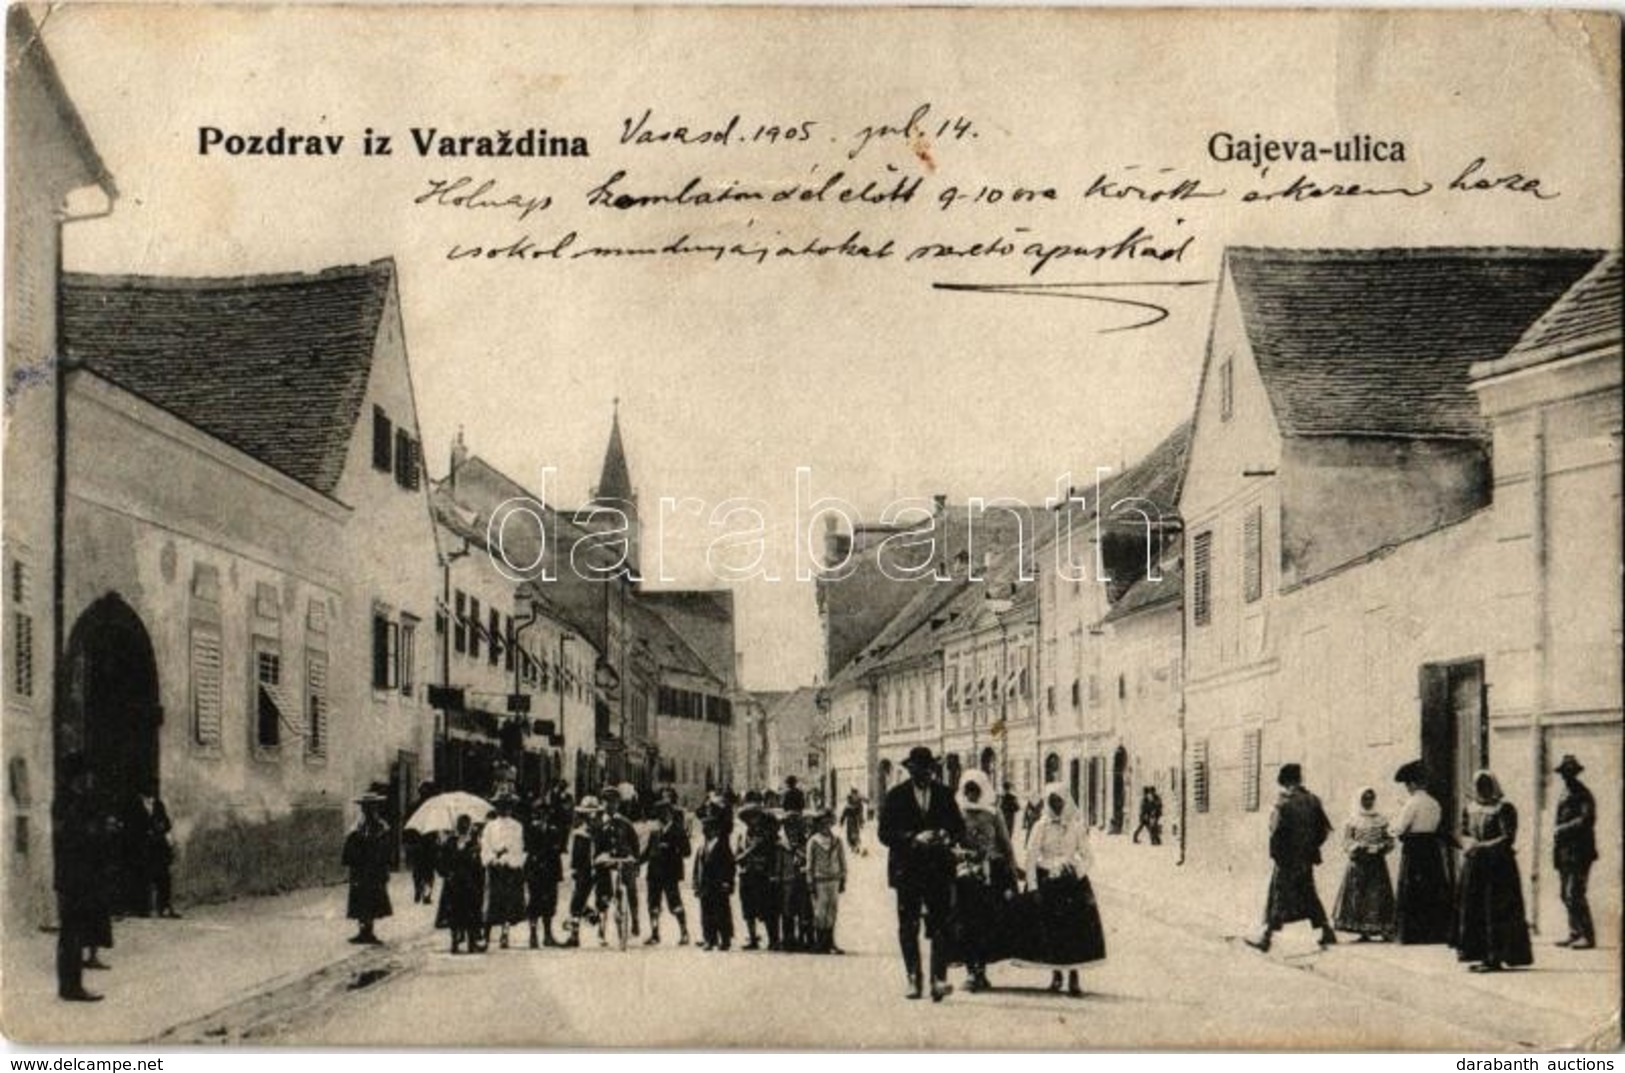 Pozdrav iz Varaždina
Vasasd. 1905. jul. 14.
Gajeva-ulica
Holnap Szombaton délelőtt 9-10 óra között érkezem haza
csokol mindnyájatokat szerető apuskád
darabanth
darabanth auctions